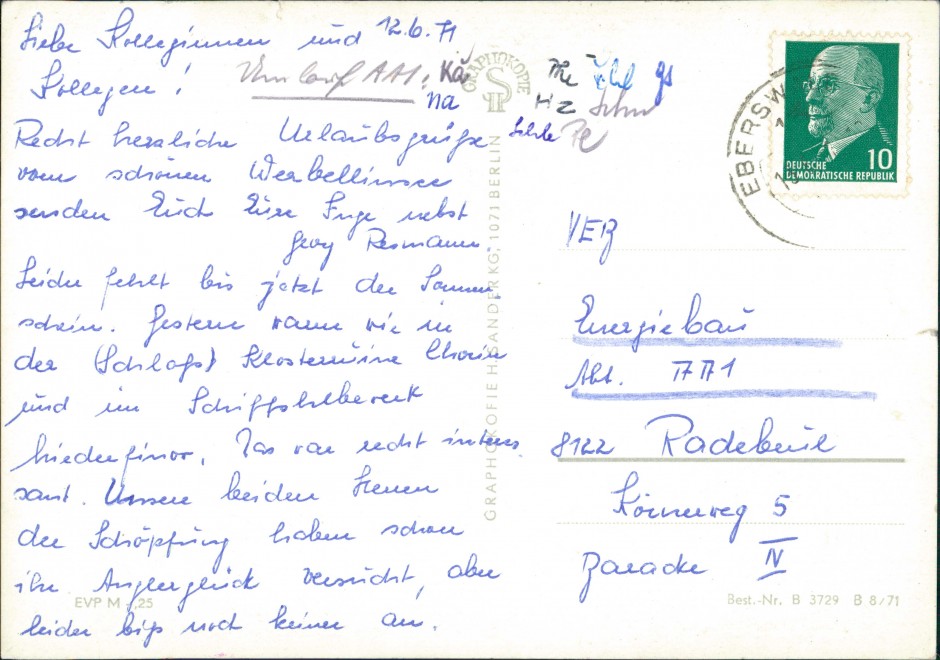 Liebe Kolleginnen und 12.6.71
Kollegen!
Umlauf AA1: Kä
na
Hz
Recht herzliche Urlaubsgrüße
vom schönen Werbellinsee
senden Euch Eure Inge nebst
Georg
Leider fehlt bis jetzt der Sonnen
schein. Gestern waren wir in
der (Schloß) Klosterruine Chorin
und im Schiffshebewerk
Niederfinow. Das war recht interes
sant. Unsere beiden Herren
der Schöpfung haben schon
ihr Anglerglück versucht, aber
leider biß noch keiner an.
EVP M ,25
GRAPHOKOPIE
GRAPHOKOPIE H. SANDER KG, 1071 BERLIN
EBERSW
DEUTSCHE
DEMOKRATISCHE REPUBLIK
10
VEB
Energiebau
Abt. AA1
8122 Radebeul
Körnerweg 5
Baracke IV
Best.-Nr. B 3729 B 8/71